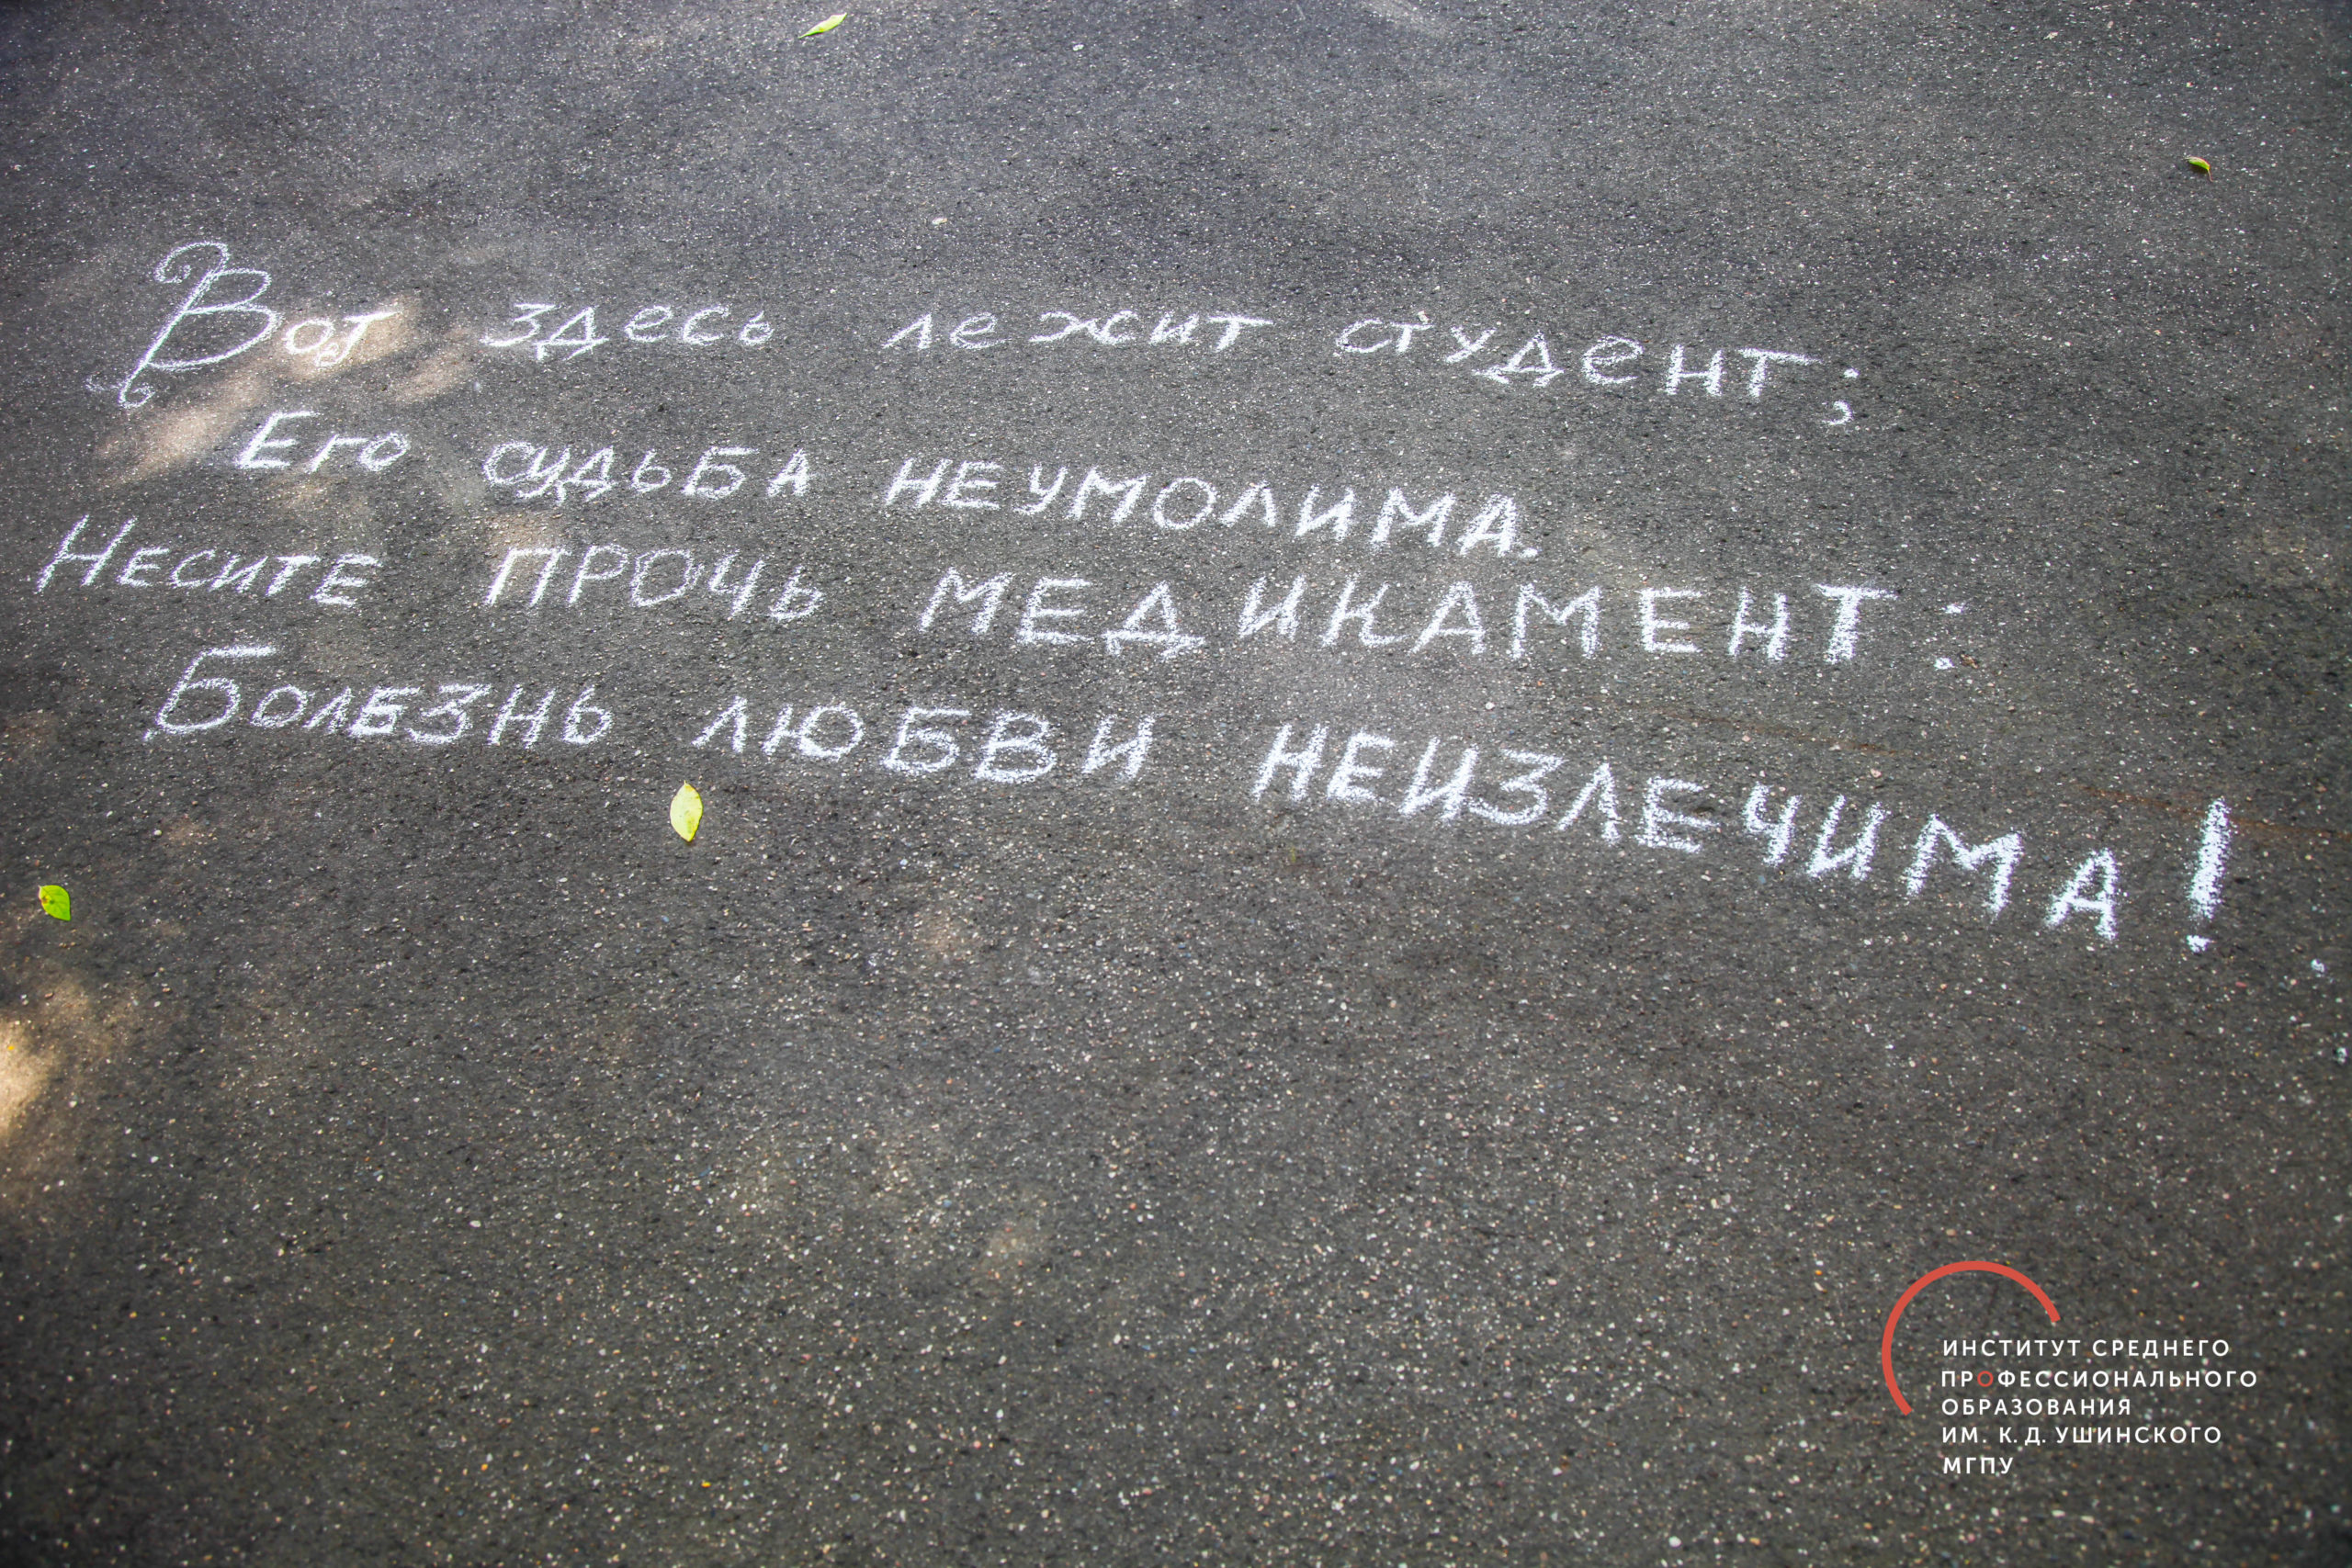 Вот здесь лежит студент;
Его судьба неумолима.
Несите прочь медикамент:
Болезнь любви неизлечима!
ИНСТИТУТ СРЕДНЕГО
ПРОФЕССИОНАЛЬНОГО
ОБРАЗОВАНИЯ
ИМ. К. Д. УШИНСКОГО
МГПУ